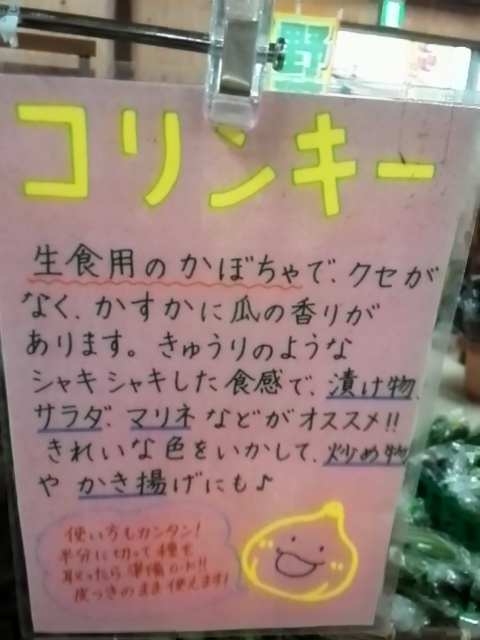 コリンキー
生食用のかぼちゃで、クセが
なく、かすかに瓜の香りが
あります。きゅうりのような
シャキシャキした食感で、漬け物、
サラダ、マリネなどがオススメ!!
きれいな色をいかして、炒め物
や かき揚げにも♪
使い方もカンタン!
半分に切って種を
取ったら準備OK!!
皮つきのまま使えます!